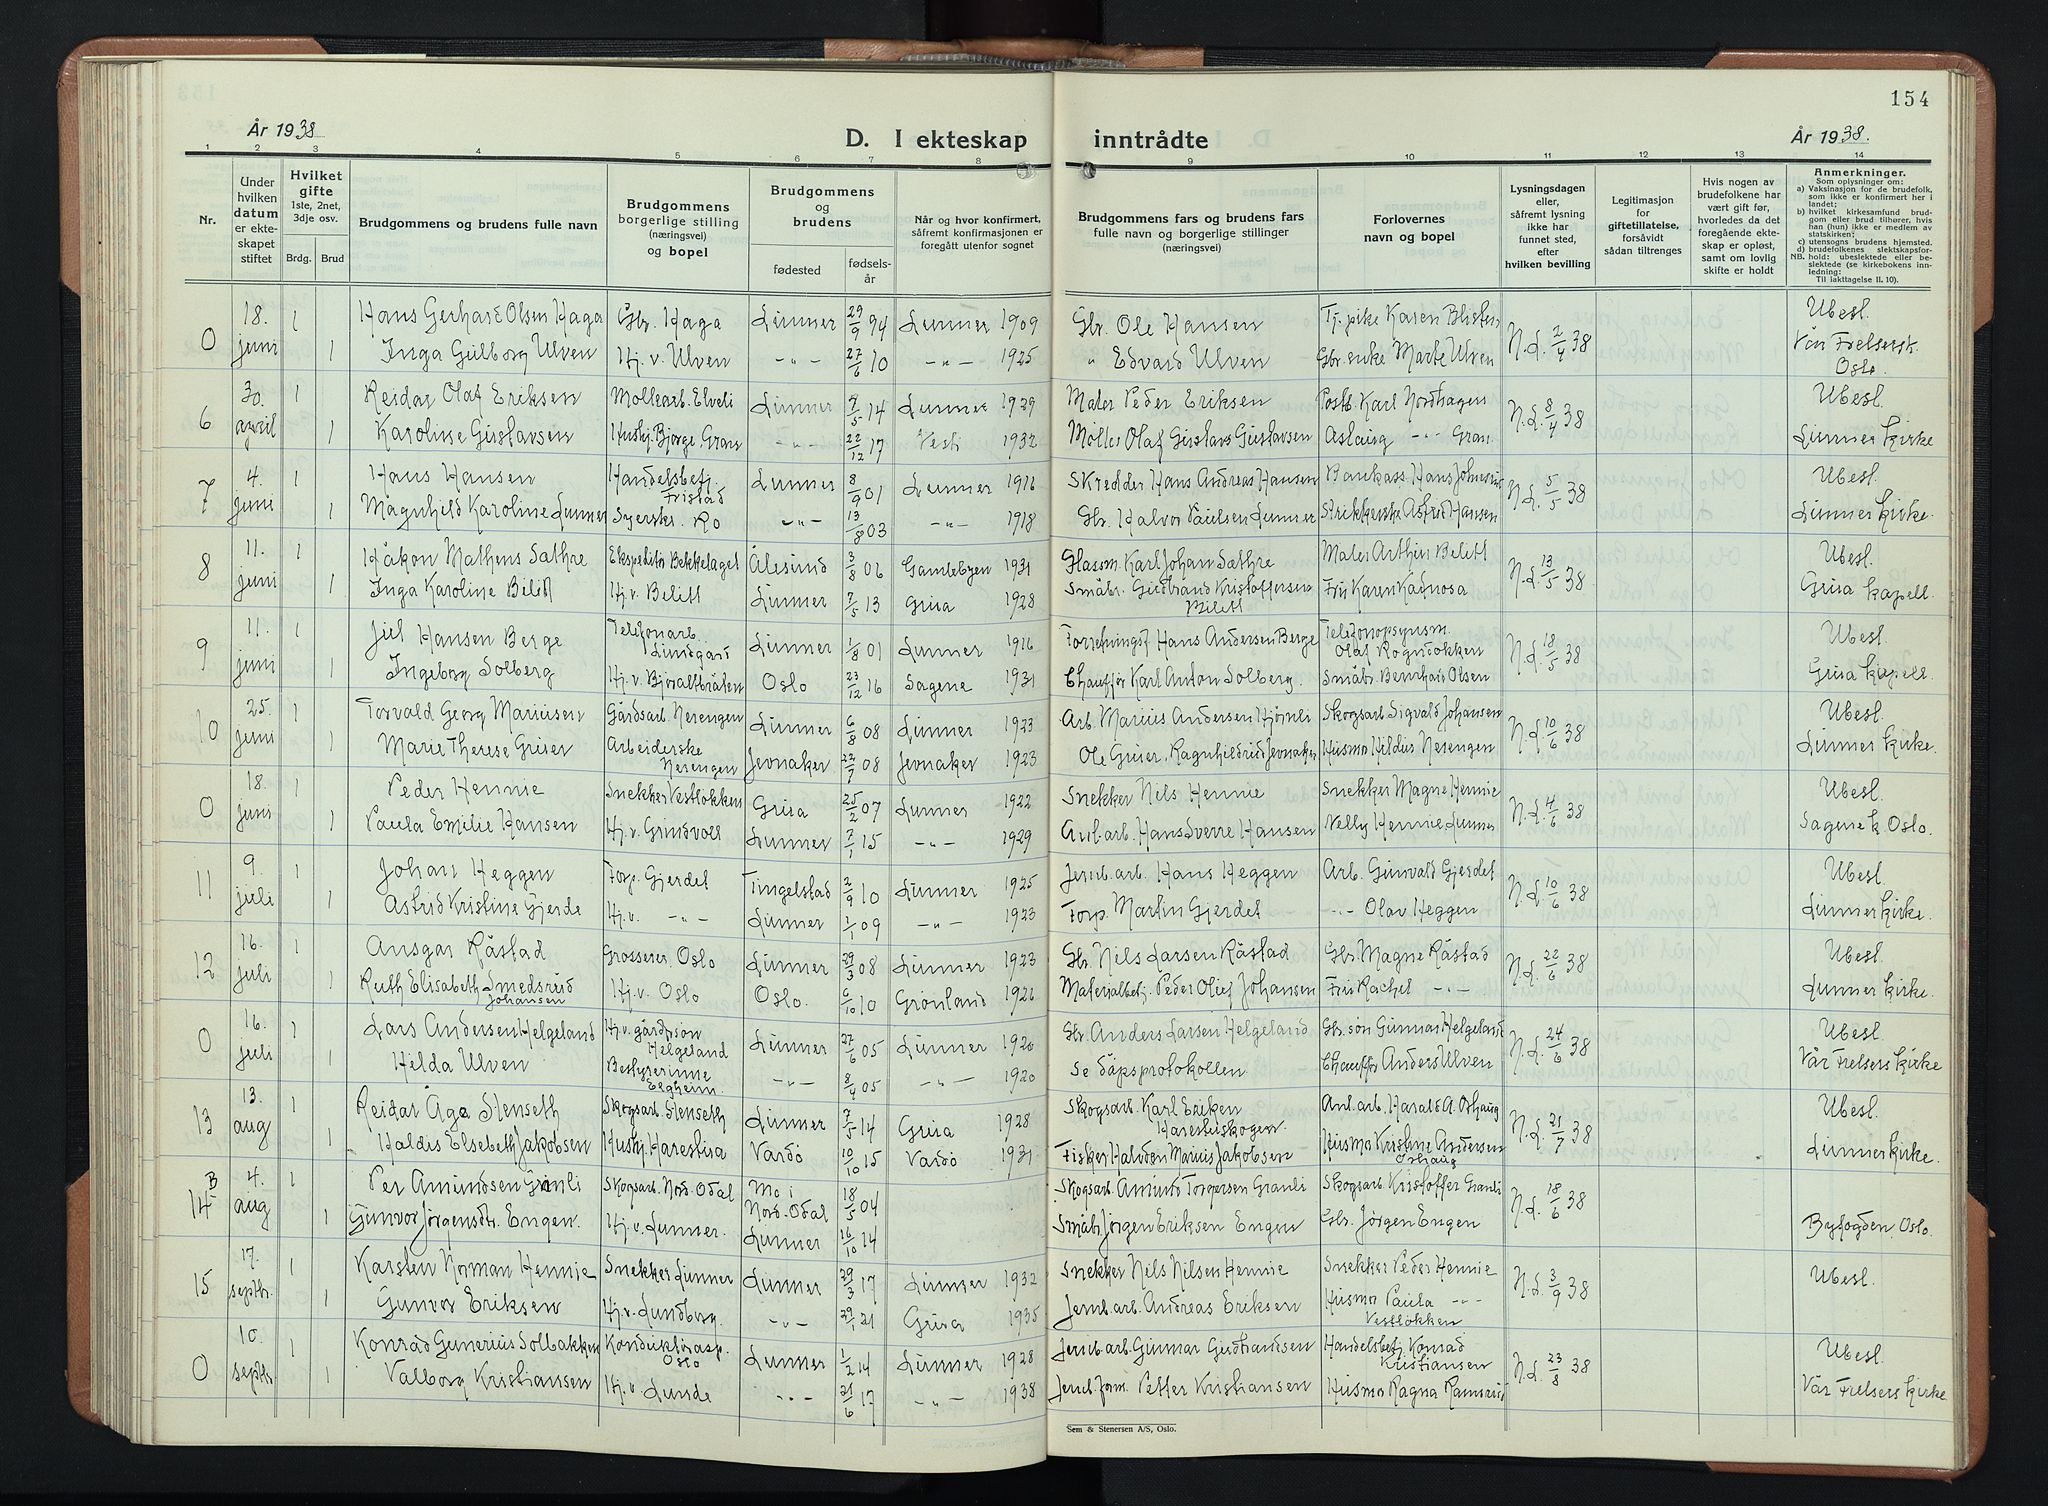 154
År 1938
D. I ekteskap inntrådte
År 1938.
1 2 3 4 5 6 7 8 9 10 11 12 13 14
Nr.
Under hvilken datum er ekteskapet stiftet
Hvilket gifte 1ste, 2net, 3dje osv.
Brdg. Brud
Brudgommens og brudens fulle navn
Brudgommens borgerlige stilling (næringsvei) og bopel
Brudgommens og brudens
fødested
fødselsår
Når og hvor konfirmert, såfremt konfirmasjonen er foregått utenfor sognet
Brudgommens fars og brudens fars fulle navn og borgerlige stillinger (næringsvei)
Forlovernes navn og bopel
Lysningsdagen eller, såfremt lysning ikke har funnet sted, efter hvilken bevilling
Legitimasjon for giftetillatelse, forsåvidt sådan tiltrenges
Hvis nogen av brudefolkene har vært gift før, hvorledes da det foregående ekteskap er opløst, samt om lovlig skifte er holdt
Anmerkninger.
Som oplysninger om:
a) Vaksinasjon for de brudefolk, som ikke er konfirmert her i landet;
b) hvilket kirkesamfund brudgom eller brud tilhører, hvis han (hun) ikke er medlem av statskirken;
c) utensogns brudens hjemsted.
d) brudefolkenes slektskapsforhold: ubeslektede eller beslektede (se kirkebokens innledning:
NB.
Til iakttagelse II. 10).
0 18. juni 1 Hans Gerhard Olsen Haga Gbr. Haga Lunner 29/9 94 Lunner 1909 Gbr. Ole Hansen Tj.pike Karen N.d. 2/4 38 Ubesl.
1 Inga Gulborg Ulven Hj. v. Ulven -"- 27/6 10 -"- 1925 " Edvard Ulven Gbr.enke Marte Ulven Vår Frelsersk. Oslo.
6 30. april 1 Reidar Olaf Eriksen Møllearb. Elveli Lunner 7/5 14 Lunner 1929 Maler Peder Eriksen Postb. Karl Nordhagen N.d. 8/4 38 Ubesl.
1 Karoline Gustavsen Hushj. Bjørge, Gran -"- 22/12 17 Vestl. 1932 Møller Olaf Gustavs Gustavsen Aslaug -"- Gran Lunner kirke
7 4. juni 1 Hans Hansen Handelsbetj. Fristad Lunner 8/9 01 Lunner 1916 Skredder Hans Andreas Hansen Bankkass. Hans Johnsrud N.d. 5/5 38 Ubesl.
1 Magnhild Karoline Lunner Syerske. Ro -"- 13/8 03 -"- 1918 Gbr. Halvor Paulsen Lunner Strikkerske Astrid Hansen Lunner Kirke.
8 11. juni 1 Håkon Mathens Sathre Ekspeditør Bekkelaget Ålesund 3/8 06 Gamlebyen 1931 Glassm. Karl Johan Sathre Maler Arthur Bilitt N.d. 13/5 38 Ubesl.
1 Inga Karoline Bilitt Hj. v. Bilitt Lunner 7/5 13 Grua 1928 Småbr. Gudbrand Kristoffersen Bilitt Fru Karen Kadnosa Grua kapell.
9 11. juni 1 Juel Hansen Berge Telefonarb. Lundgård Lunner 1/8 01 Lunner 1916 Forretningsf. Hans Andersen Berge Telefonopsynsm. Olaf Rognstokken N.d. 18/5 38 Ubesl.
1 Ingeborg Solberg Hj. v. Bjøraltbråten Oslo 23/12 16 Sagene 1931 Chauffør Karl Anton Solberg. Småbr. Bernhard Olsen Grua Kapell.
10 25. juni 1 Torvald Georg Mariusen Gårdsarb. Nerengen Lunner 6/8 08 Lunner 1923 Arb. Marius Andersen Hjørnli Skogsarb. Sigvald Johansen N.d. 10/6 38 Ubesl.
1 Marie Therese Gruer Arbeiderske Nerengen Jevnaker 22/7 08 Jevnaker 1923 Ole Gruer, Ragnhildrud Jevnaker Husmo Hildur Nerengen Lunner kirke.
0 18. juni 1 Peder Hennie Snekker Vestløkken Grua 25/2 07 Lunner 1922 Snekker Nils Hennie Snekker Magne Hennie N.d. 4/6 38 Ubesl.
1 Paula Emilie Hansen Hj. v. Grindvoll Lunner 7/1 15 -"- 1929 Anl.arb. Hans Sverre Hansen Nelly Hennie Lunner Sagene k. Oslo.
11 9. juli 1 Johan Heggen Forp. Gjerdet Tingelstad 2/9 10 Lunner 1925 Jernb.arb. Hans Heggen Arb. Gunvald Gjerdet N.d. 10/6 38 Ubesl.
1 Astrid Kristine Gjerde Hj. v. -"- Lunner 1/1 09 -"- 1923 Forp. Martin Gjerdet -"- Olav Heggen Lunner kirke.
12 16. juli 1 Ansgar Råstad Grosserer. Oslo Lunner 29/3 08 Lunner 1923 Gbr. Nils Larsen Råstad Gbr. Magne Råstad N.d. 22/6 38 Ubesl.
1 Ruth Elisabeth Smedsrud Johansen Hj. v. Oslo Oslo. 6/10 10 Grønland 1926 Materialbetj. Peder Oluf Johansen Fru Rachel -"- Lunner kirke.
0 16. juli 1 Lars Andersen Helgeland Hj.v. gårdb.søn Helgeland Lunner 27/6 05 Lunner 1920 Gbr. Anders Larsen Helgeland Gbr.søn Gunnar Helgeland N.d. 24/6 38 Ubesl.
1 Hilda Ulven Bestyrerinne Elgheim -"- 8/4 05 -"- 1920 Se dåpsprotokollen Chauffør Anders Ulven Vår Frelsers kirke
13 13. aug 1 Reidar Åge Stenseth Skogsarb. Stenseth Lunner 7/5 14 Grua 1928 Skogsarb. Karl Eriken Harestuskogen Anl.arb. Harald A. Åshaug N.d. 21/7 38 Ubesl.
1 Haldis Elsebeth Jakobsen Hushj. Harestua Vardö 10/10 15 Vardö 1931 Fisker Halvdan Marius Jakobsen Husmor Kristine Andersen Åshaug Lunner kirke.
14 B 4. aug 1 Per Amundsen Granli Skogsarb. Nord.Odal Mo i Nord.Odal 18/5 04 Skogsarb. Amund Torgersen Granli Skogsarb. Kristoffer Granli N.d. 18/6 38
1 Gunvor Jørgensdtr. Engen. Hj. v. Lunner. Lunner 16/10 14 Småbr. Jørgen Eriksen Engen Gbr. Jørgen Engen Byfogden, Oslo.
15 17. septbr. 1 Karsten Norman Hennie Snekker Lunner Lunner 29/3 17 Lunner 1932 Snekker Nils Nilsen Hennie Snekker Peder Hennie N.d. 3/9 38 Ubesl.
1 Gunvor Eriksen Hj.v. Lundberg. -"- 29/1 21 Grua 1935 Jernb.arb. Andreas Eriksen Husmor Paula -"- Vestløkken
0 10. septbr 1 Konrad Gunerius Solbakken Konduktørasp. Oslo Lunner 1/2 14 Lunner 1928 Jernb.arb. Gunnar Gudbrandsen Handelsbetj. Konrad Kristiansen N.d. 23/8 38 Ubesl.
1 Valborg Kristiansen Hj. v. Lunde -"- 21/6 17 -"- 1938 Jernb.form. Petter Kristiansen Husmor Ragna Ramsrud Vår Frelsers kirke
Sem & Stenersen A/S, Oslo.